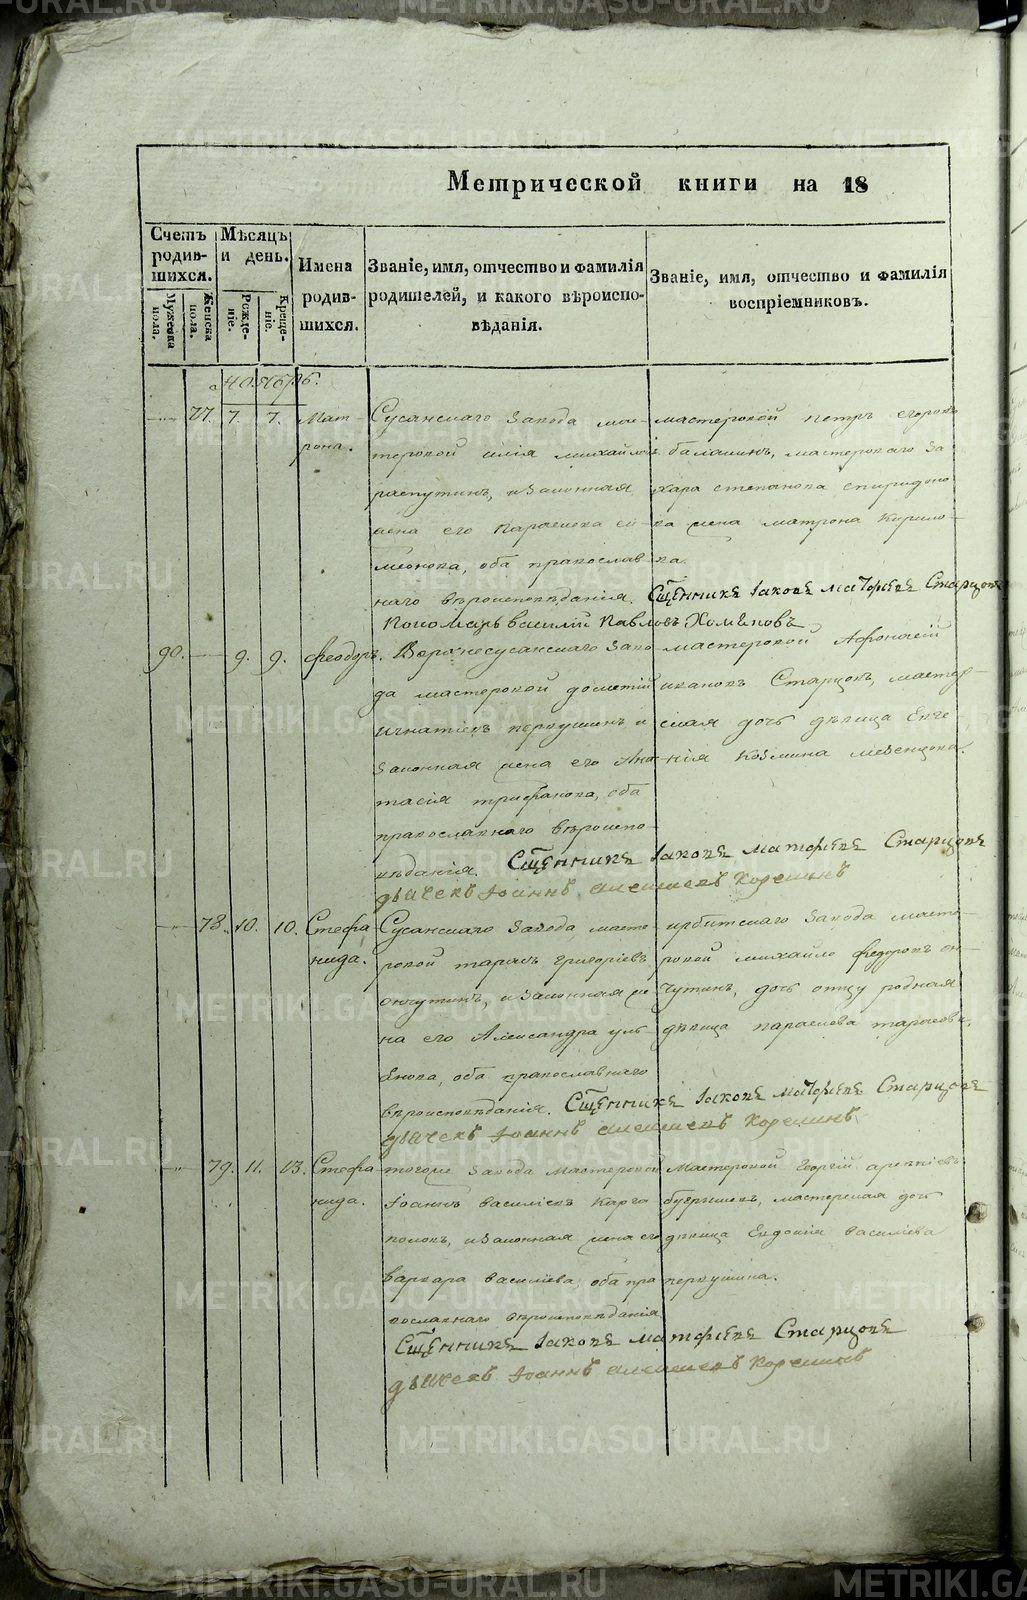 METRIKI.GASO-URAL.RU
Метрической книги на 18
Счетъ родив-шихся.
Мужеска пола.
Женска пола.
Мѣсяцъ и день.
Рожде-ніе.
Креще-ніе.
Имена родив-шихся.
Званіе, имя, отчество и фамилія родителей, и какого вѣроиспо-вѣданія.
Званіе, имя, отчество и фамилія воспріемниковъ.
Ноябрь.
77. 7. 7. Мат-
рона.
Сусанскаго завода мас-
теровой илія михайловъ
распутинъ, и законная
жена его Параскева
оба православ-
наго вѣроисповѣданія.
мастеровой петръ егоровъ
мастероваго за-
хара степанова спиридоно-
ва жена матрона Кирило-
ва.
Сщ҃енникъ Іаковъ матфѣевъ Старцовъ
Пономарь василій Павловъ Хомяковъ
90. 9. 9. Феодоръ.
Верхнесусанскаго заво-
да мастеровой дометій
игнатіевъ першинъ и
законная жена его Анас-
тасія трифанова, оба
православнаго вѣроиспо-
вѣданія.
мастеровой Афонасій
ивановъ Старцовъ, мастер-
ская дочь дѣвица Евге-
нія Козмина мезенцова.
Сщ҃енникъ Іаковъ матфѣевъ Старцовъ
дьячекъ Іоаннъ алексѣевъ Корелинъ
78. 10. 10. Стефа-
нида.
Сусанскаго завода, масте-
ровой тарасъ григоріевъ
ончутинъ, и законная же-
на его Александра улья-
нова, оба православнаго
вѣроисповѣданія.
ирбитскаго завода масте-
ровой михайло федоровъ он-
чутинъ, дочь отцу родная
дѣвица параскева тарасова.
Сщ҃енникъ Іаковъ матфѣевъ Старцовъ
дьячекъ Іоаннъ алексѣевъ Корелинъ
79. 11. 13. Стефа-
нида.
тогоже завода мастеровой
Іоаннъ василіевъ Карго-
половъ, и законная жена его
варвара василіева, оба пра-
вославнаго вѣроисповѣданія
Мастеровой Георгій
мастерская дочь
дѣвица Евдокия василіева
першина.
Сщ҃енникъ Іаковъ матфѣевъ Старцовъ
дьячекъ Іоаннъ алексѣевъ Корелинъ